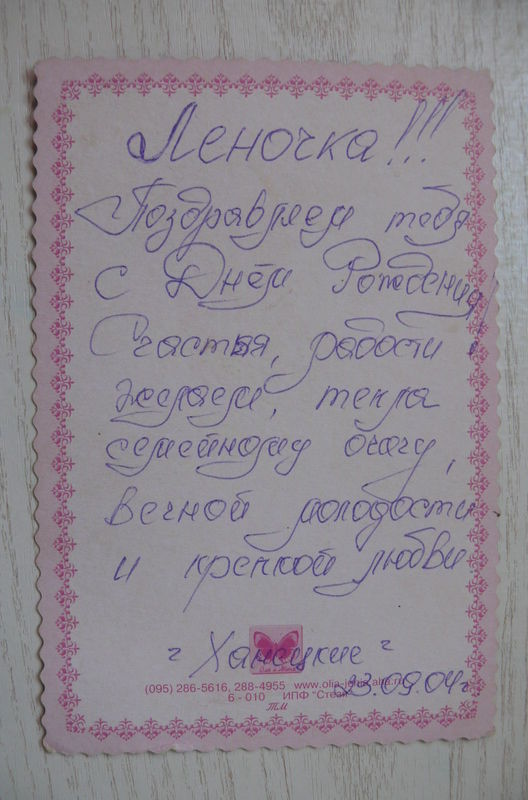 Леночка!!!
Поздравляем тебя
с Днём Рождения!
Счастья, радости
желаем, тепла
семейному очагу,
вечной молодости
и крепкой любви
"Ханецкие"
(095) 286-5616, 288-4955 www.olia-j
6 - 010 ИПФ "Стезя"
23.09.04г
ТМ